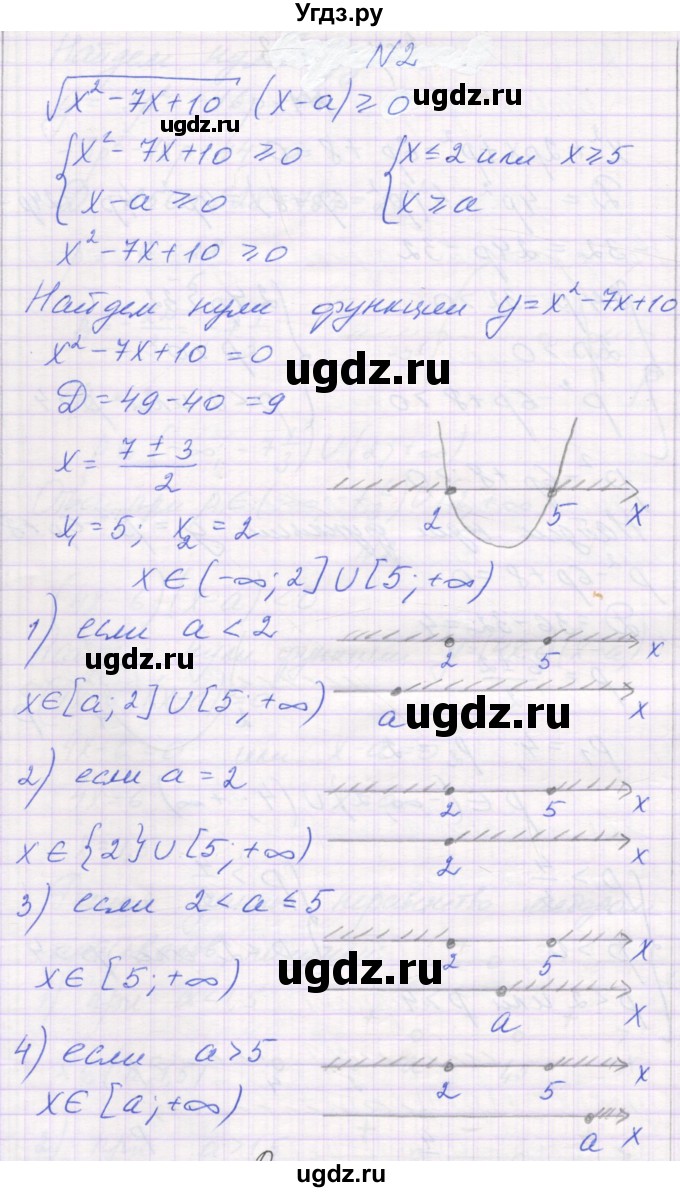 Угдз.ру
N2
√x² - 7x + 10 (x - a) ≥ 0
ugdz.ru
{ x² - 7x + 10 ≥ 0 { x ≤ 2 или x ≥ 5
x - a ≥ 0 x ≥ a
x² - 7x + 10 ≥ 0
Найдем нули функции y = x² - 7x + 10
x² - 7x + 10 = 0
ugdz.ru
D = 49 - 40 = 9
x = (7 ± 3)/2
2 5 x
x₁ = 5; x₂ = 2
x ∈ (-∞; 2] ∪ [5; +∞)
1) если a < 2
2 5 x
ugdz.ru
x ∈ [a; 2] ∪ [5; +∞)
a x
ugdz.ru
2) если a = 2
2 5 x
x ∈ {2} ∪ [5; +∞)
2 x
3) если 2 < a ≤ 5
2 5 x
x ∈ [5; +∞)
ugdz.ru
a x
4) если a > 5
2 5 x
x ∈ [a; +∞)
a x
ugdz.ru